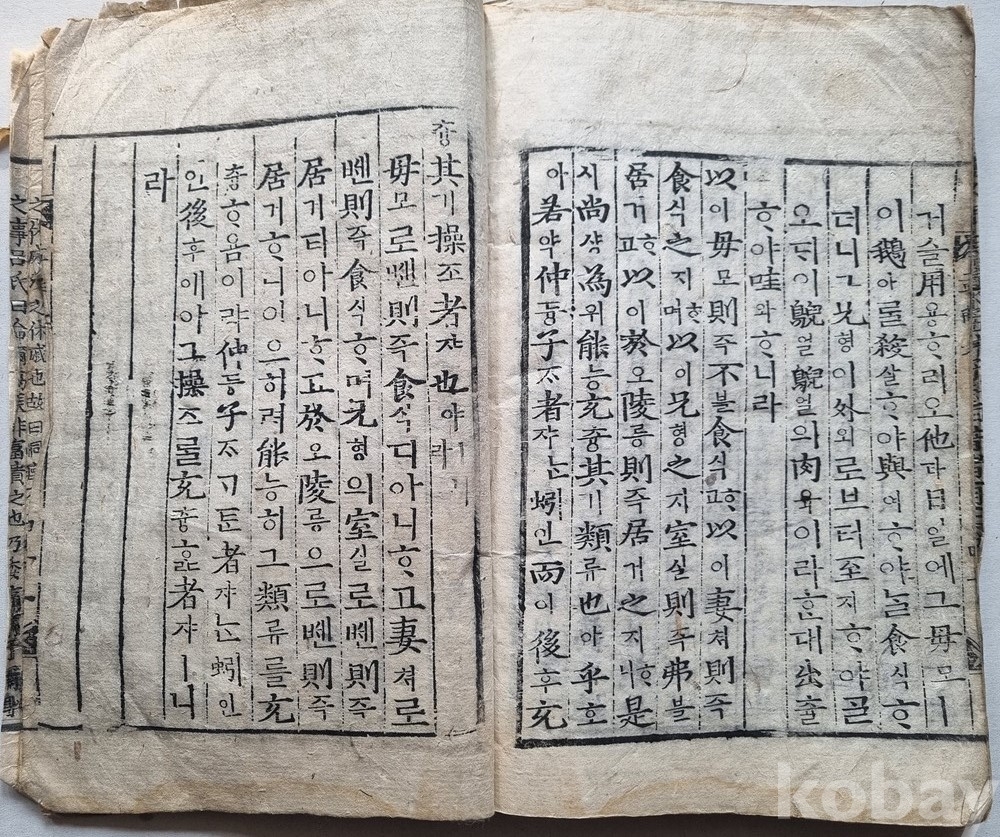 거슬用용ᄒᆞ리오他타日일에그母모ㅣ
이鵝아ᄅᆞᆯ殺살ᄒᆞ야與여ᄒᆞ야ᄂᆞᆯ食식ᄒᆞ
더니그兄형이外외로브터至지ᄒᆞ야ᄀᆞᆯ
오ᄃᆡ이鶃얼鶃얼의肉육이라ᄒᆞᆫ대出츌
ᄒᆞ야哇와ᄒᆞ니라
以이母모則즉不블食식ᄒᆞ고以이妻쳐則즉
食식之지ᄒᆞ며以이兄형之지室실則즉弗블
居거ᄒᆞ고以이於오陵릉則즉居거之지ᄒᆞ니是
시尙샹爲위能능充츙其기類류也야乎호
아若약仲듕子ᄌᆞ者쟈ᄂᆞᆫ蚓인而이後후充
츙其기操조者쟈也야라
母모로ᄡᅦᆫ則즉食식디아니ᄒᆞ고妻쳐로
ᄡᅦᆫ則즉食식ᄒᆞ며兄형의室실로ᄡᅦᆫ則즉
居거티아니ᄒᆞ고於오陵릉으로ᄡᅦᆫ則즉
居거ᄒᆞ니이으히려能능히그類류를充
츙ᄒᆞ욤이랴仲듕子ᄌᆞᄀᆞᄐᆞᆫ者쟈ᄂᆞᆫ蚓인
인後후에아그操조ᄅᆞᆯ充츙ᄒᆞᆯ者쟈ㅣ니
라
kobay